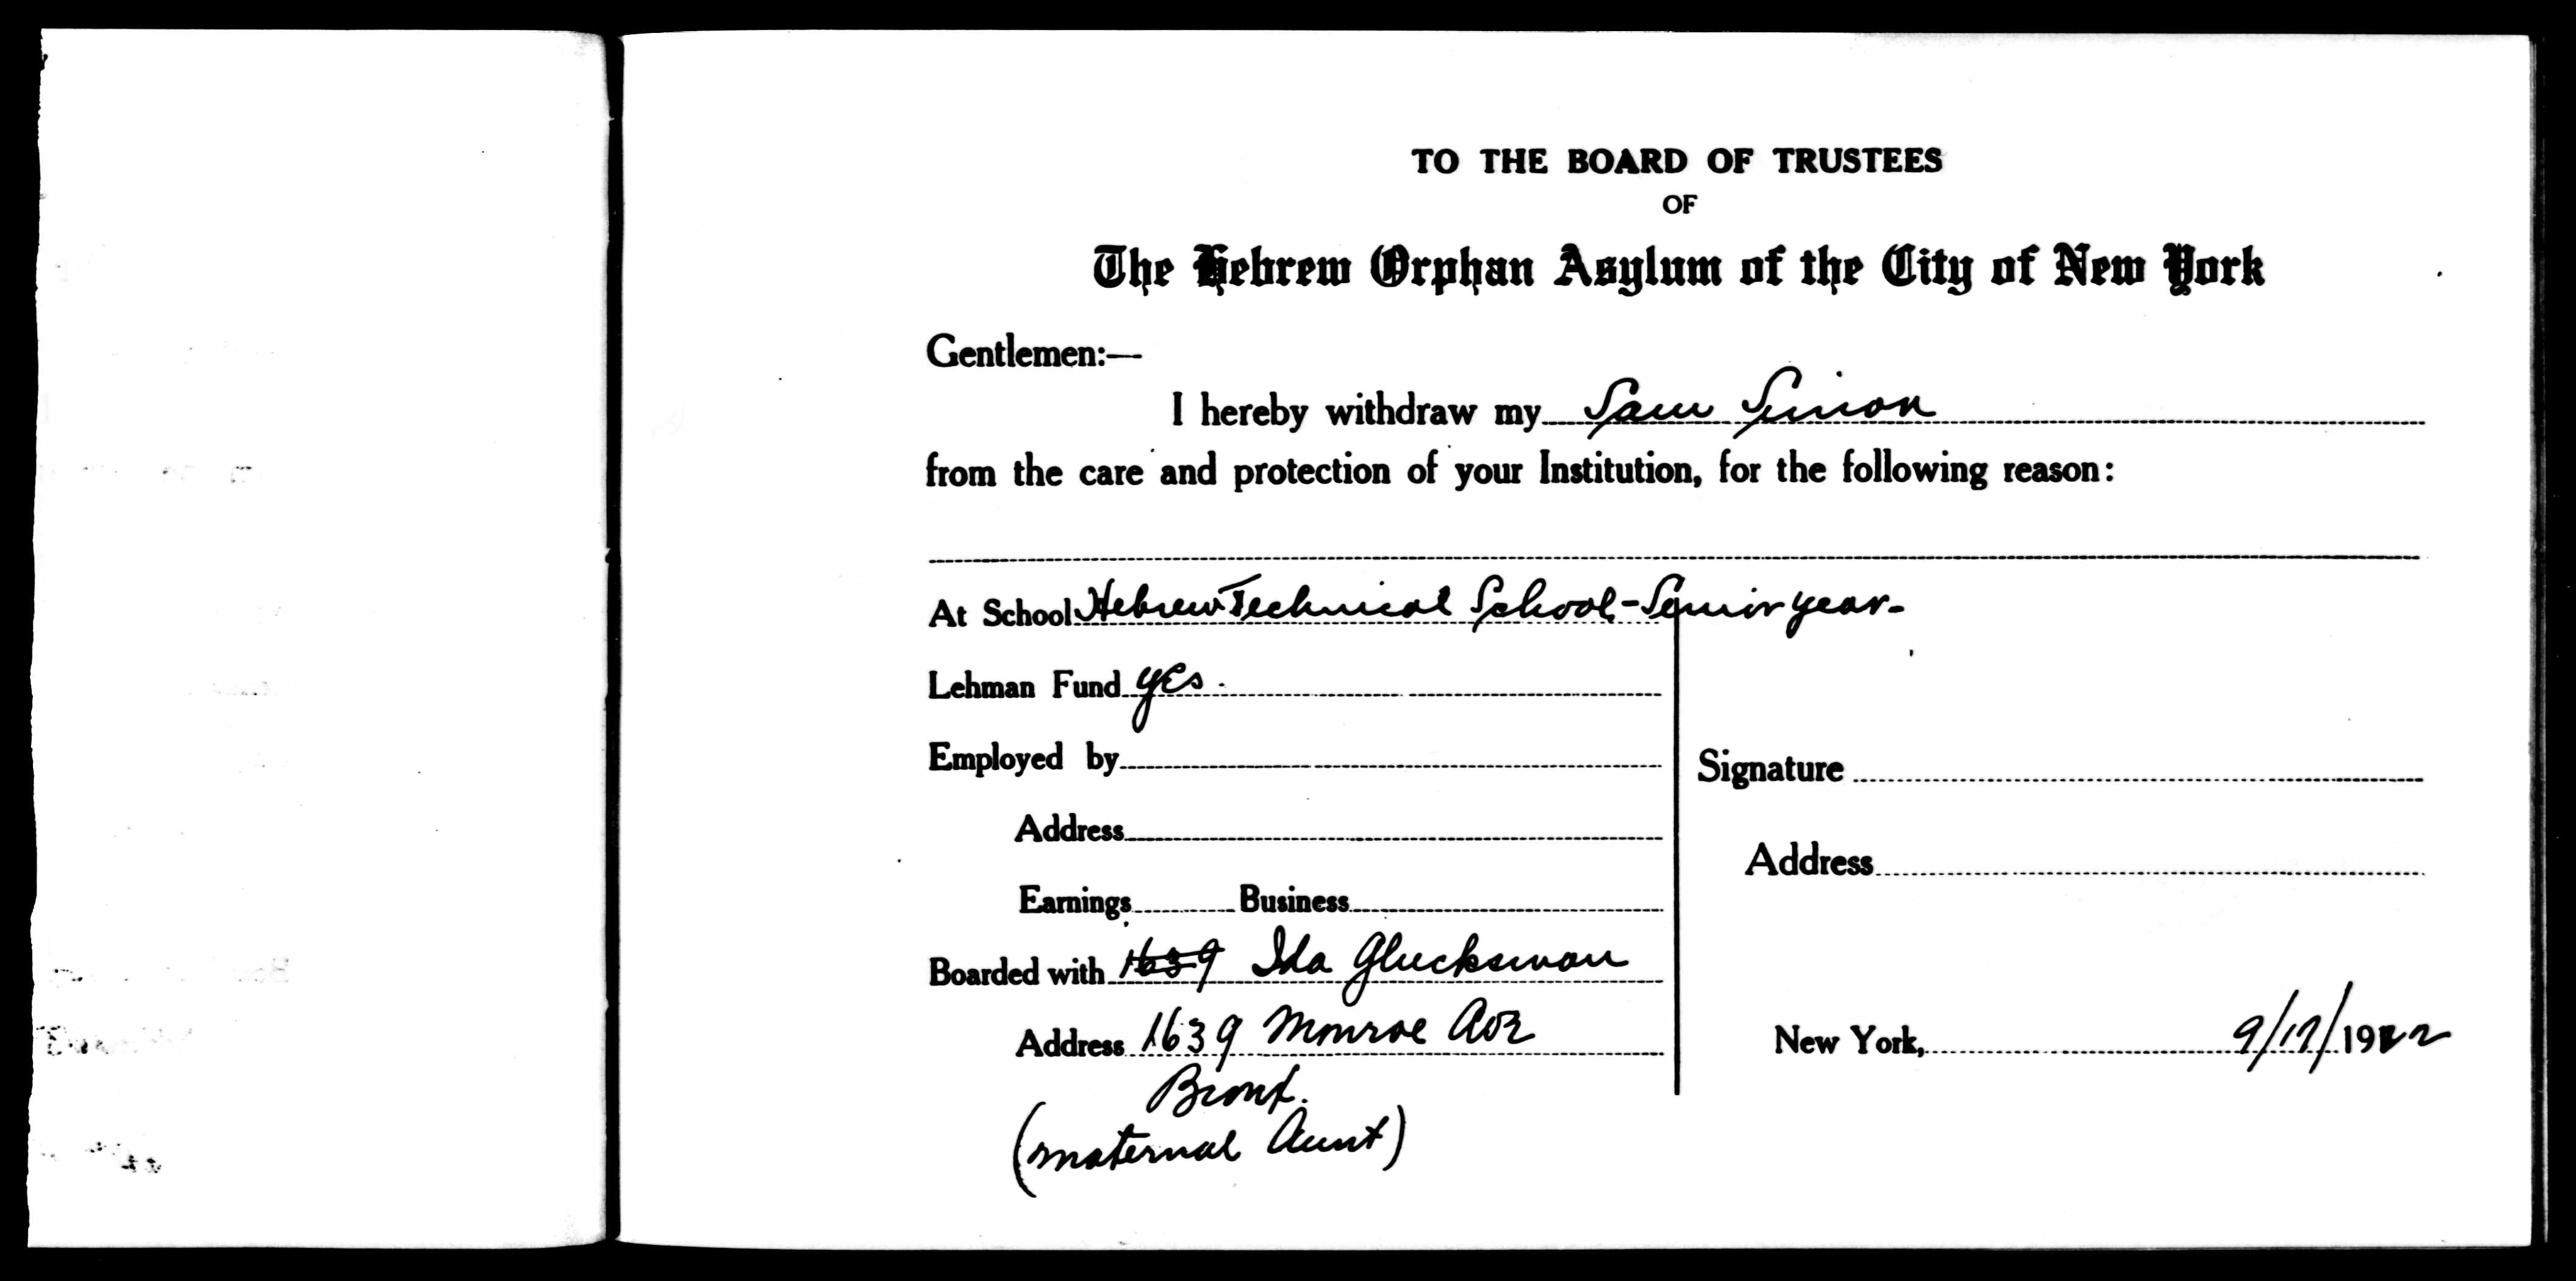 TO THE BOARD OF TRUSTEES
OF
The Hebrew Orphan Asylum of the City of New York
Gentlemen:—
I hereby withdraw my Sam Simon
from the care and protection of your Institution, for the following reason:
At School Hebrew Technical School - Senior year.
Lehman Fund yes.
Employed by
Address
Earnings Business
Boarded with 1639 Ida Glucksman
Address 1639 Monroe Ave
Bronx.
(maternal Aunt)
Signature
Address
New York, 9/17/1922